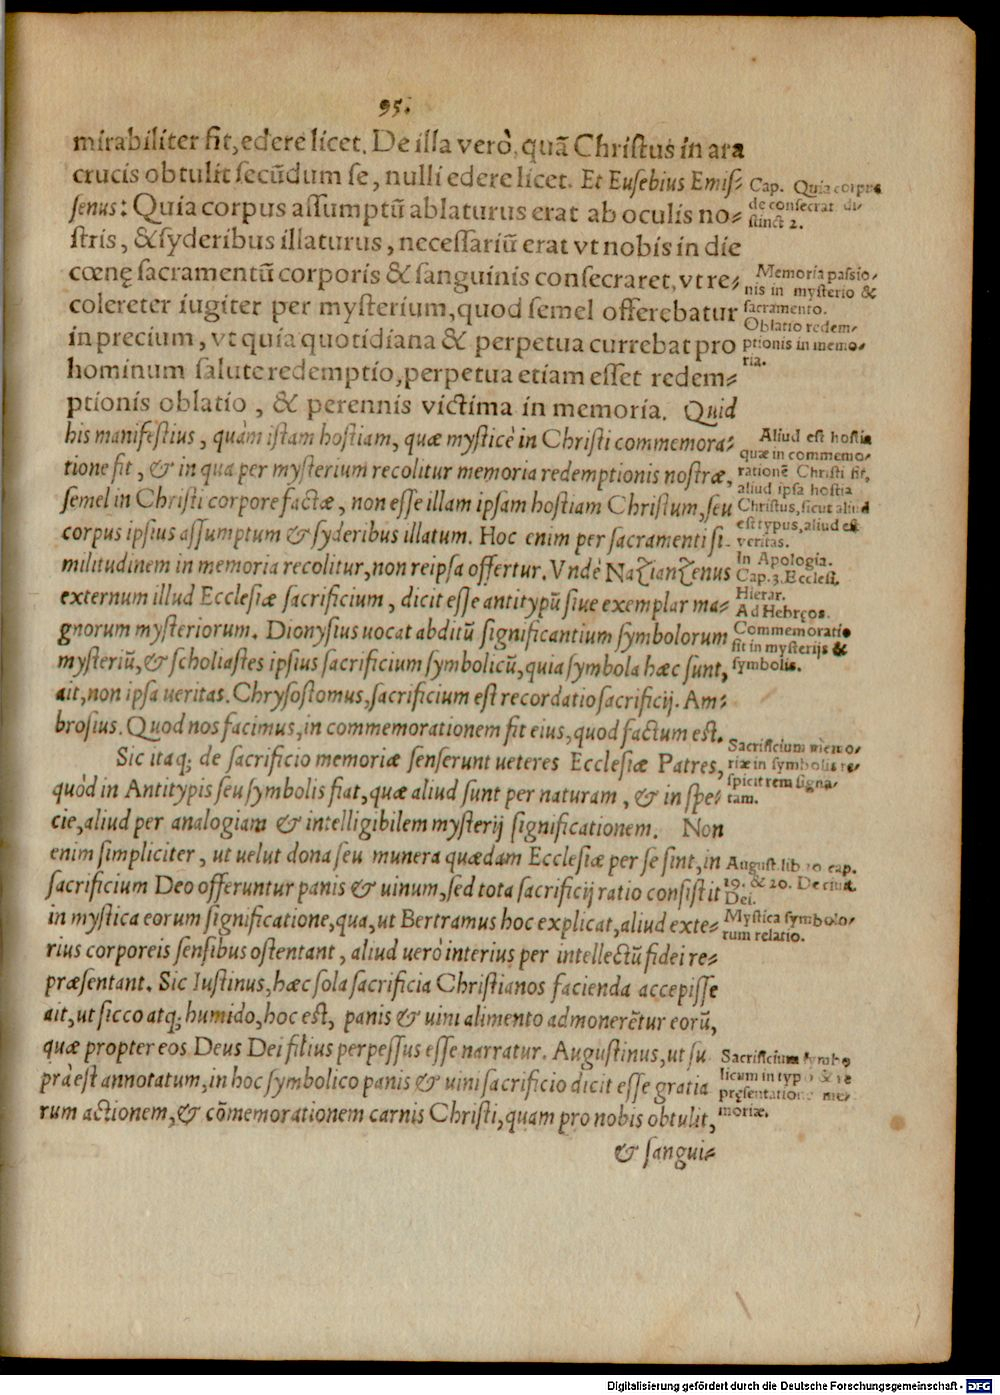 95.
mirabiliter fit, edere licet. De illa verò, quā Christus in ara
crucis obtulit secūdum se, nulli edere licet. Et Eusebius Emis⸗
senus: Quia corpus assumptū ablaturus erat ab oculis no⸗
stris, & syderibus illaturus, necessariū erat vt nobis in die
cœnę sacramentū corporis & sanguinis consecraret, vt re⸗
coleretur iugiter per mysterium, quod semel offerebatur
in precium, vt quia quotidiana & perpetua currebat pro
hominum salute redemptio, perpetua etiam esset redem⸗
ptionis oblatio, & perennis victima in memoria. Quid
his manifestius, quàm istam hostiam, quæ mysticè in Christi commemora⸗
tione fit, & in qua per mysterium recolitur memoria redemptionis nostræ,
semel in Christi corpore factæ, non esse illam ipsam hostiam Christum, seu
corpus ipsius assumptum & syderibus illatum. Hoc enim per sacramenti si⸗
militudinem in memoria recolitur, non reipsa offertur. Vndè Nazianzenus
externum illud Ecclesiæ sacrificium, dicit esse antitypū siue exemplar ma⸗
gnorum mysteriorum. Dionysius uocat abditū significantium symbolorum
mysteriū, & scholiastes ipsius sacrificium symbolicū, quia symbola hæc sunt,
ait, non ipsa ueritas. Chrysostomus, sacrificium est recordatio sacrificij. Am⸗
brosius. Quod nos facimus, in commemorationem fit eius, quod factum est.
Sic itaq; de sacrificio memoriæ senserunt ueteres Ecclesiæ Patres,
quòd in Antitypis seu symbolis fiat, quæ aliud sunt per naturam, & in spe⸗
cie, aliud per analogiam & intelligibilem mysterij significationem. Non
enim simpliciter, ut uelut dona seu munera quædam Ecclesiæ per se sint, in
sacrificium Deo offeruntur panis & uinum, sed tota sacrificij ratio consistit
in mystica eorum significatione, qua, ut Bertramus hoc explicat, aliud exte⸗
rius corporeis sensibus ostentant, aliud uerò interius per intellectū fidei re⸗
præsentant. Sic Iustinus, hæc sola sacrificia Christianos facienda accepisse
ait, ut sicco atq; humido, hoc est, panis & uini alimento admonerētur eorū,
quæ propter eos Deus Dei filius perpessus esse narratur. Augustinus, ut su
prà est annotatum, in hoc symbolico panis & uini sacrificio dicit esse gratia
rum actionem, & cōmemorationem carnis Christi, quam pro nobis obtulit,
& sangui⸗
Cap. Quia corpus
de consecrat. di⸗
stinct 2.
Memoria passio⸗
nis in mysterio &
sacramento.
Oblatio redem⸗
ptionis in memo⸗
ria.
Aliud est hostia
quæ in commemo⸗
rationē Christi fit,
aliud ipsa hostia
Christus, sicut aliud
est typus, aliud est
veritas.
In Apologia.
Cap. 3. Ecclest.
Hierar.
Ad Hebręos.
Commemoratio
fit in mysterijs &
symbolis.
Sacrificium memo⸗
riæ in symbolis re⸗
spicit rem signa⸗
tam.
August. lib 10 cap.
19. & 20. De ciuit.
Dei.
Mystica symbolo⸗
rum relatio.
Sacrificium symbo
licum in typo & re
pręsentatione me⸗
moriæ.
Digitalisierung gefördert durch die Deutsche Forschungsgemeinschaft - DFG